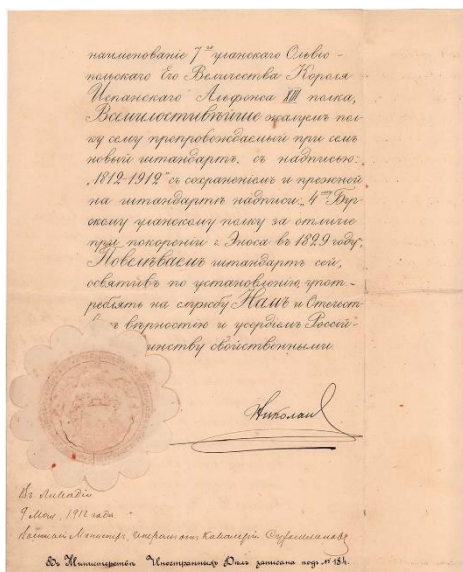 наименованіе 7го уланскаго Ольвіо-
польскаго Его Величества Короля
Испанскаго Альфонса XIII полка,
Всемилостивѣйше жалуемъ пол-
ку сему препровождаемый при семъ
новый штандартъ, съ надписью:
„1812-1912" съ сохраненіемъ и прежной
на штандартѣ надписи: „4му Буг-
скому уланскому полку за отличіе
при покореніи г. Эноса въ 1829 году".
Повелѣваемъ штандартъ сей,
освятивъ по установленію, упот-
реблять на службу Намъ и Отечест-
вѣрностію и усердіемъ Россій-
воинству свойственными.
Николай
Въ Ливадіи
9 Мая, 1912 года.
Военный Министръ, Генералъ отъ Кавалеріи Сухомлиновъ
Въ Министерствѣ Иностранныхъ Дѣлъ записана подъ № 134.